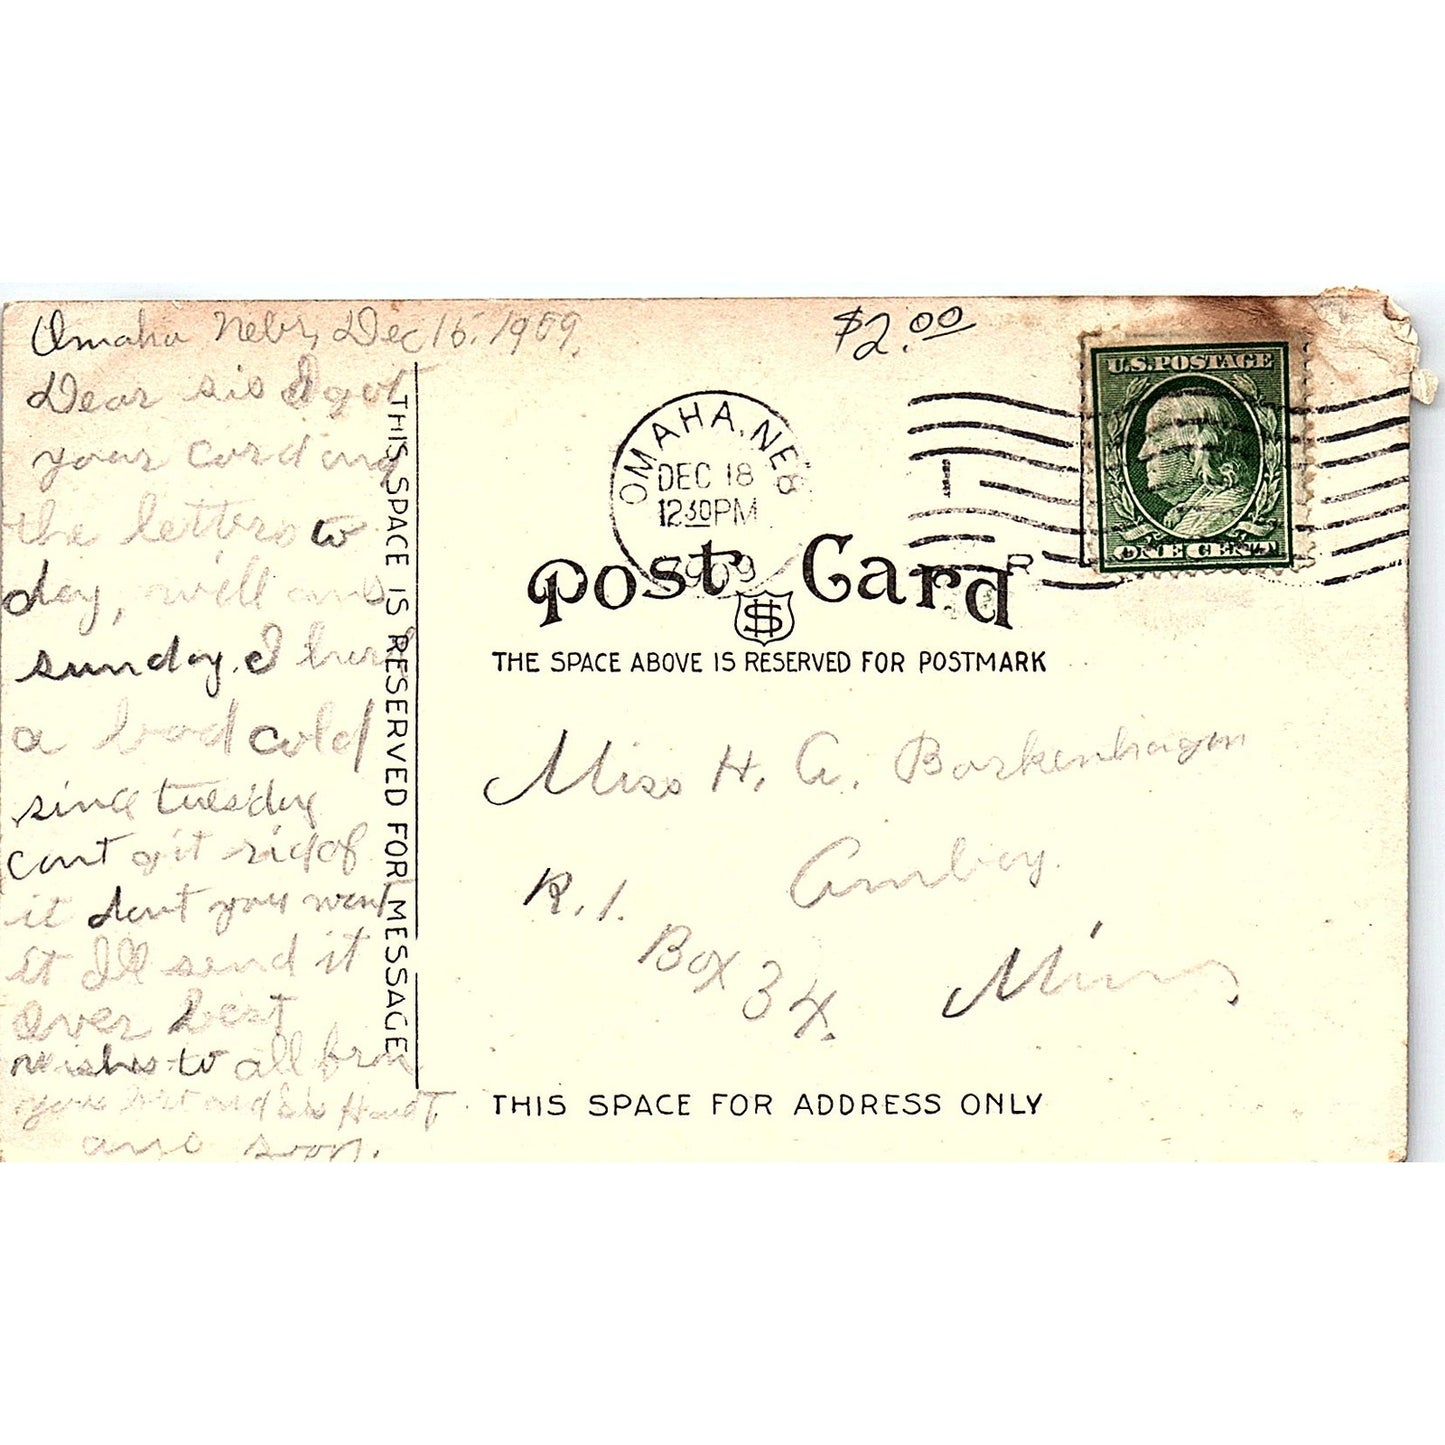 Omaha Nebr, Dec 15. 1909.
Dear sis I got
your card and
the letters to
day, will ans
sunday. I have
a bad cold
since tuesday
cant git rid of
it dont you want
it Ill send it
over best
wishes to all from
your and
ans soon.
THIS SPACE IS RESERVED FOR MESSAGE
$2.00
OMAHA, NEB
DEC 18
12 30 PM
1909
U.S. POSTAGE
ONE CENT
Post Card
THE SPACE ABOVE IS RESERVED FOR POSTMARK
Miss H. A. Borkenhagen
Amboy.
R. 1.
Box 34.
Minn,
THIS SPACE FOR ADDRESS ONLY